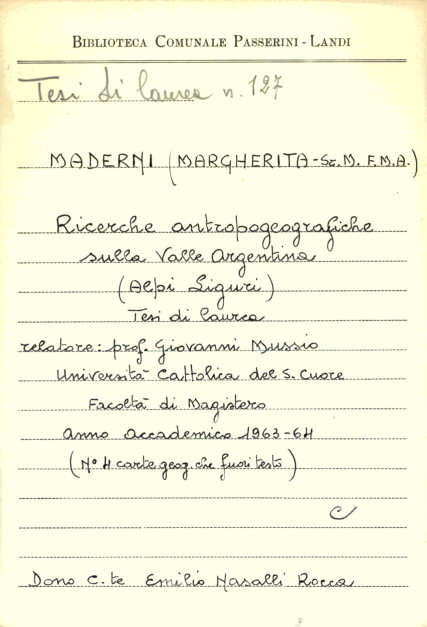 BIBLIOTECA COMUNALE PASSERINI - LANDI
Tesi di laurea n. 127
MADERNI (MARGHERITA - Sr. M. F.M.A.)
Ricerche antropogeografiche
sulla Valle Argentina
(Alpi Liguri)
Tesi di laurea
relatore: prof. Giovanni Mussio
Università Cattolica del S. Cuore
Facoltà di Magistero
anno accademico 1963-64
(N° 4 carte geog.che fuori testo)
C
Dono C.te Emilio Nasalli Rocca